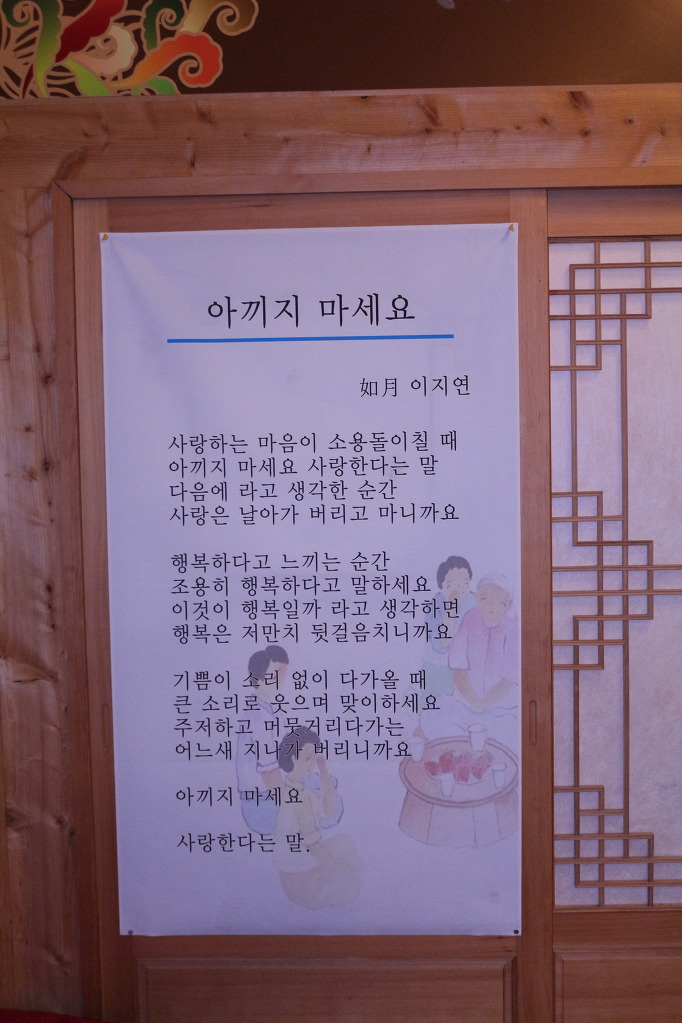 아끼지 마세요
如月 이지연
사랑하는 마음이 소용돌이칠 때
아끼지 마세요 사랑한다는 말
다음에 라고 생각한 순간
사랑은 날아가 버리고 마니까요
행복하다고 느끼는 순간
조용히 행복하다고 말하세요
이것이 행복일까 라고 생각하면
행복은 저만치 뒷걸음치니까요
기쁨이 소리 없이 다가올 때
큰 소리로 웃으며 맞이하세요
주저하고 머뭇거리다가는
어느새 지나가 버리니까요
아끼지 마세요
사랑한다는 말.